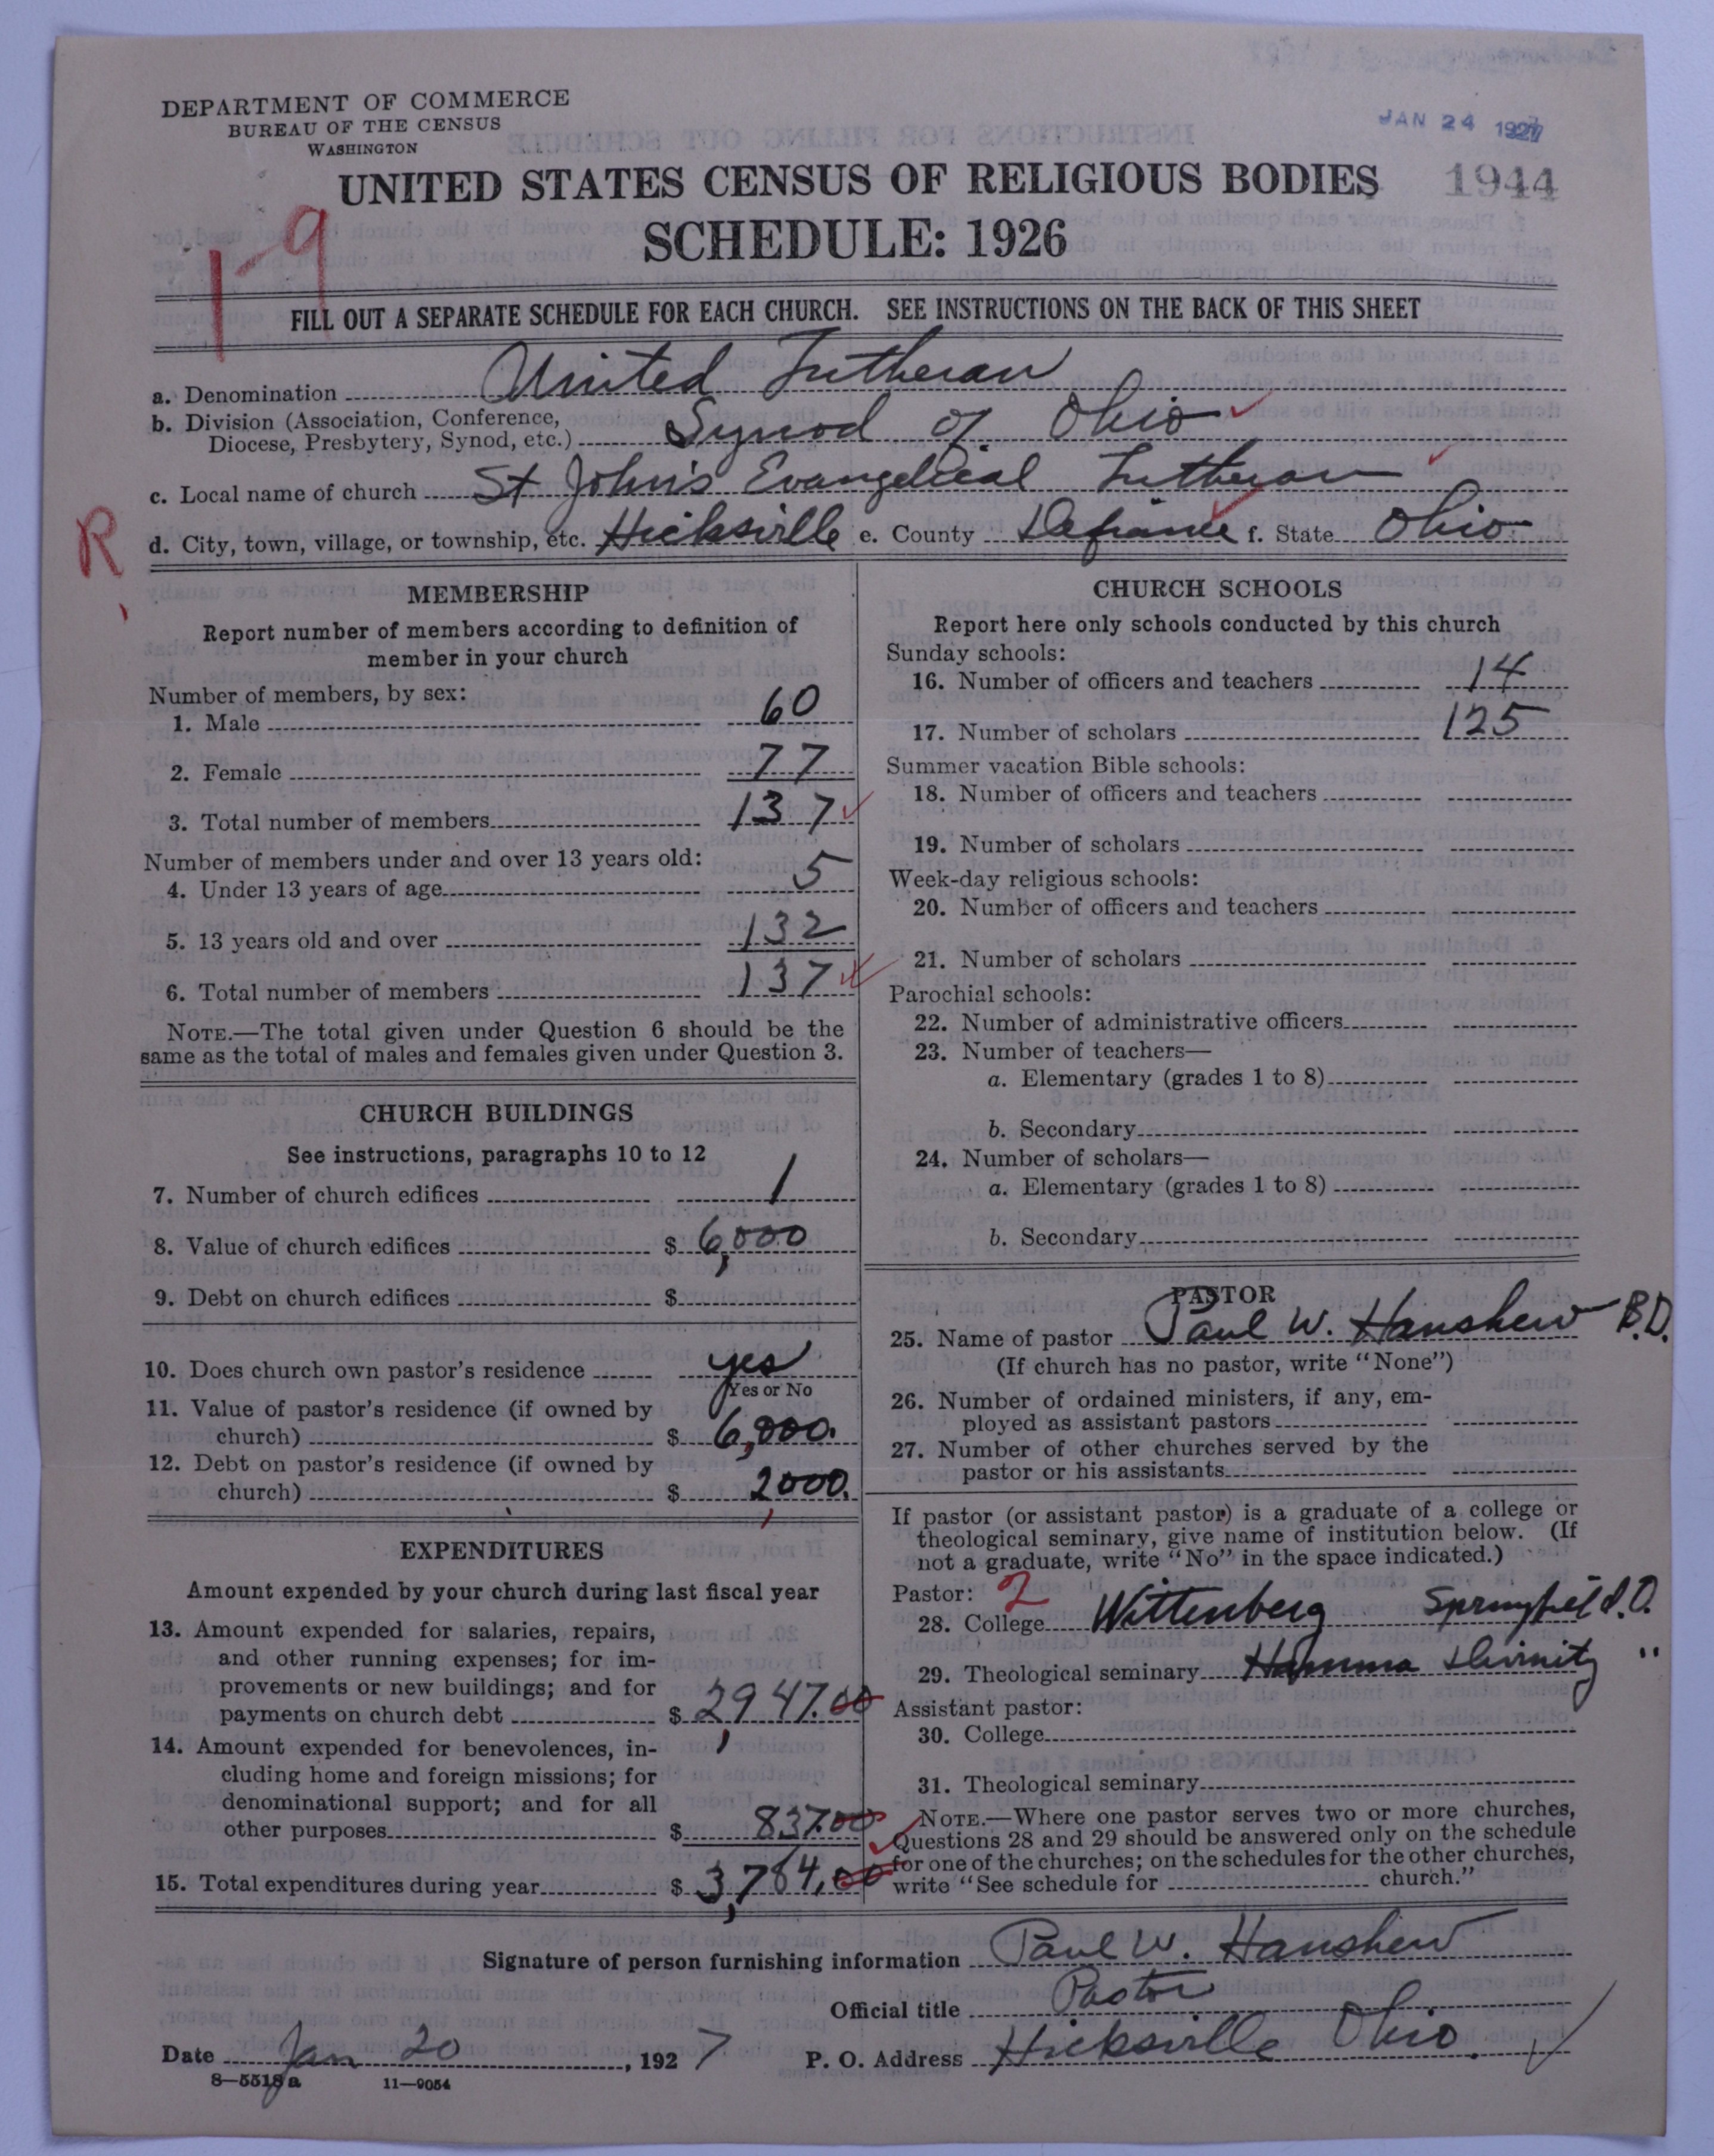 DEPARTMENT OF COMMERCE
BUREAU OF THE CENSUS
WASHINGTON
JAN 24 1927
UNITED STATES CENSUS OF RELIGIOUS BODIES
1944
SCHEDULE: 1926
1-9
FILL OUT A SEPARATE SCHEDULE FOR EACH CHURCH. SEE INSTRUCTIONS ON THE BACK OF THIS SHEET
a. Denomination United Lutheran
b. Division (Association, Conference,
Diocese, Presbytery, Synod, etc.) Synod of Ohio
c. Local name of church St John's Evangelical Lutheran
R
d. City, town, village, or township, etc. Hicksville e. County Defiance f. State Ohio
MEMBERSHIP
Report number of members according to definition of
member in your church
Number of members, by sex:
1. Male 60
2. Female 77
3. Total number of members 137
Number of members under and over 13 years old:
4. Under 13 years of age 5
5. 13 years old and over 132
6. Total number of members 137
NOTE.—The total given under Question 6 should be the
same as the total of males and females given under Question 3.
CHURCH BUILDINGS
See instructions, paragraphs 10 to 12
7. Number of church edifices 1
8. Value of church edifices $ 6,000
9. Debt on church edifices $
10. Does church own pastor's residence yes
Yes or No
11. Value of pastor's residence (if owned by
church) $ 6,000.
12. Debt on pastor's residence (if owned by
church) $ 2,000.
EXPENDITURES
Amount expended by your church during last fiscal year
13. Amount expended for salaries, repairs,
and other running expenses; for im-
provements or new buildings; and for
payments on church debt $ 2,947.00
14. Amount expended for benevolences, in-
cluding home and foreign missions; for
denominational support; and for all
other purposes $ 837.00
15. Total expenditures during year $ 3,784.00
CHURCH SCHOOLS
Report here only schools conducted by this church
Sunday schools:
16. Number of officers and teachers 14
17. Number of scholars 125
Summer vacation Bible schools:
18. Number of officers and teachers
19. Number of scholars
Week-day religious schools:
20. Number of officers and teachers
21. Number of scholars
Parochial schools:
22. Number of administrative officers
23. Number of teachers—
a. Elementary (grades 1 to 8)
b. Secondary
24. Number of scholars—
a. Elementary (grades 1 to 8)
b. Secondary
PASTOR
25. Name of pastor Paul W. Hanshew B.D.
(If church has no pastor, write "None")
26. Number of ordained ministers, if any, em-
ployed as assistant pastors
27. Number of other churches served by the
pastor or his assistants
If pastor (or assistant pastor) is a graduate of a college or
theological seminary, give name of institution below. (If
not a graduate, write "No" in the space indicated.)
Pastor: 2
28. College Wittenberg Springfield.O.
29. Theological seminary Hamma Divinity "
Assistant pastor:
30. College
31. Theological seminary
NOTE.—Where one pastor serves two or more churches,
Questions 28 and 29 should be answered only on the schedule
for one of the churches; on the schedules for the other churches,
write "See schedule for church."
Signature of person furnishing information Paul W. Hanshew
Official title Pastor
Date Jan 20, 1927 P. O. Address Hicksville Ohio.
8—5518a 11—9054